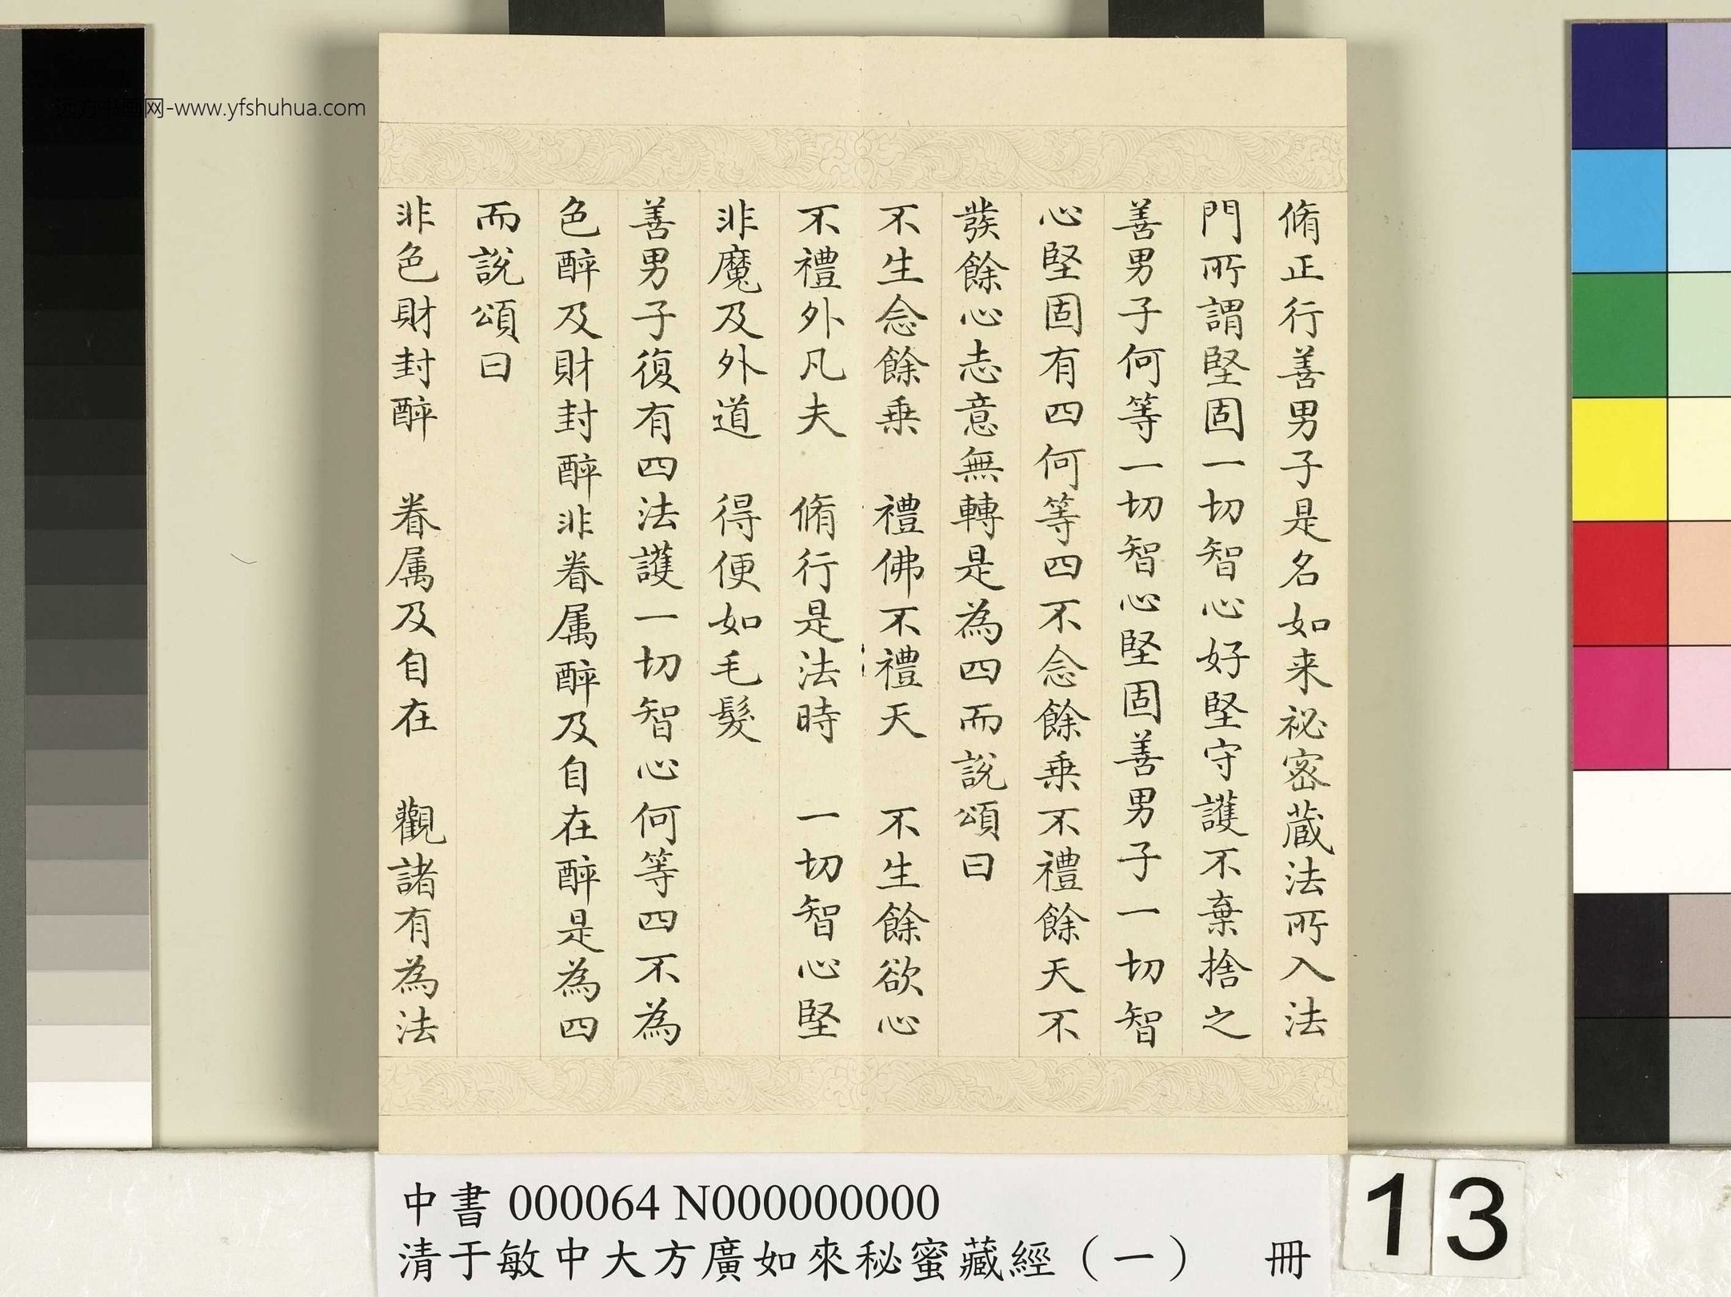 脩正行善男子是名如来祕密蔵法所入法
門所謂堅固一切智心好堅守護不棄捨之
善男子何等一切智心堅固善男子一切智
心堅固有四何等四不念餘乗不禮餘天不
發餘心志意無轉是為四而說頌曰
不生念餘乗　禮佛不禮天　不生餘欲心
不禮外凡夫　脩行是法時　一切智心堅
非魔及外道　得便如毛髮
善男子復有四法護一切智心何等四不為
色醉及財封醉非眷属醉及自在醉是為四
而說頌曰
非色財封醉　眷属及自在　觀諸有為法
中書 000064 N000000000
清于敏中大方廣如來秘蜜藏經（一）　冊
13
网-www.yfshuhua.com